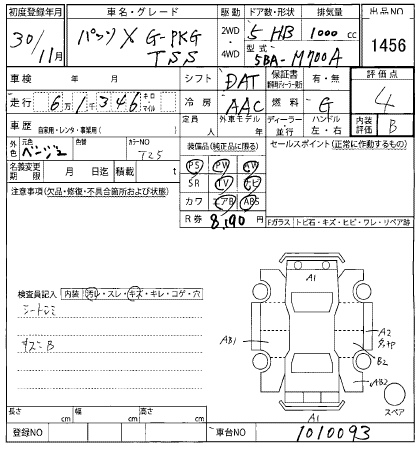 初度登録年月 車名・グレード 駆動 ドア数・形状 排気量 出品NO
30/11月 パッソ X G-PKG TSS 2WD 4WD 5 HB 1000 cc 1456
型式 5BA-M700A
車検 年 月 シフト DAT 保証書 有・無 評価点
走行 6万1千346 キロ マイル 冷房 AAC 燃料 G 4
車歴 自家用・レンタ・事業用( ) 定員 人 外車モデル 年 ディーラー 並行 ハンドル 左・右 内装評価 B
外色 元色 ベージュ 色替 カラーNO T25 装備品(純正品に限る) セールスポイント(正常に作動するもの)
名義変更期限 月 日迄 積載 t PS PW
注意事項(欠品・修復・不具合箇所および状態) SR TV ナビ
カワ エアB ABS
R券 8,190 Fガラス トビ石・キズ・ヒビ・ワレ・リペア跡
A1
検査員記入 内装 汚レ・スレ・キズ・キレ・コゲ・穴
シートシミ
AB1 A2
B2
AB2
スペア
A1
長さ cm 幅 cm 高さ cm
登録NO 車台NO 1010093